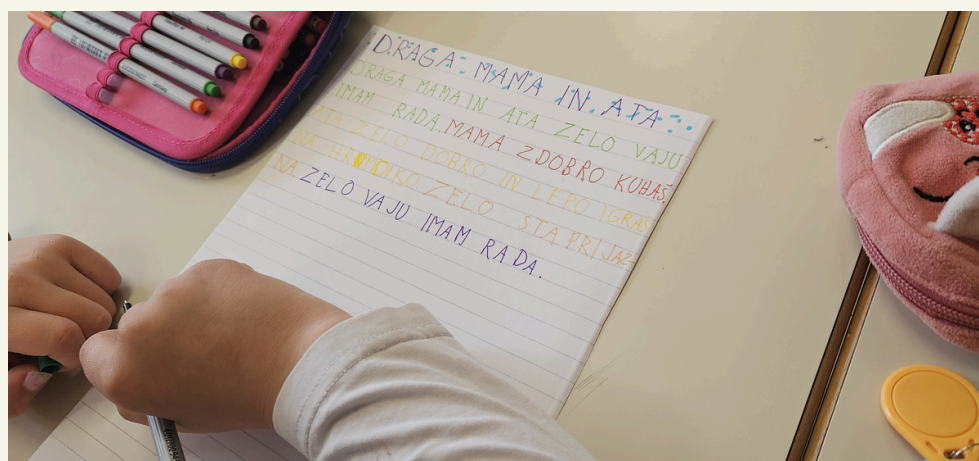 DRAGA MAMA IN ATA
DRAGA MAMA IN ATA ZELO VAJU
IMAM RADA. MAMA ZDOBRO KUHAŠ,
ATA ZELO DOBRO IN LEPO IGRAŠ
NA ZELO STA PRIJAZ
NA. ZELO VAJU IMAM RADA.